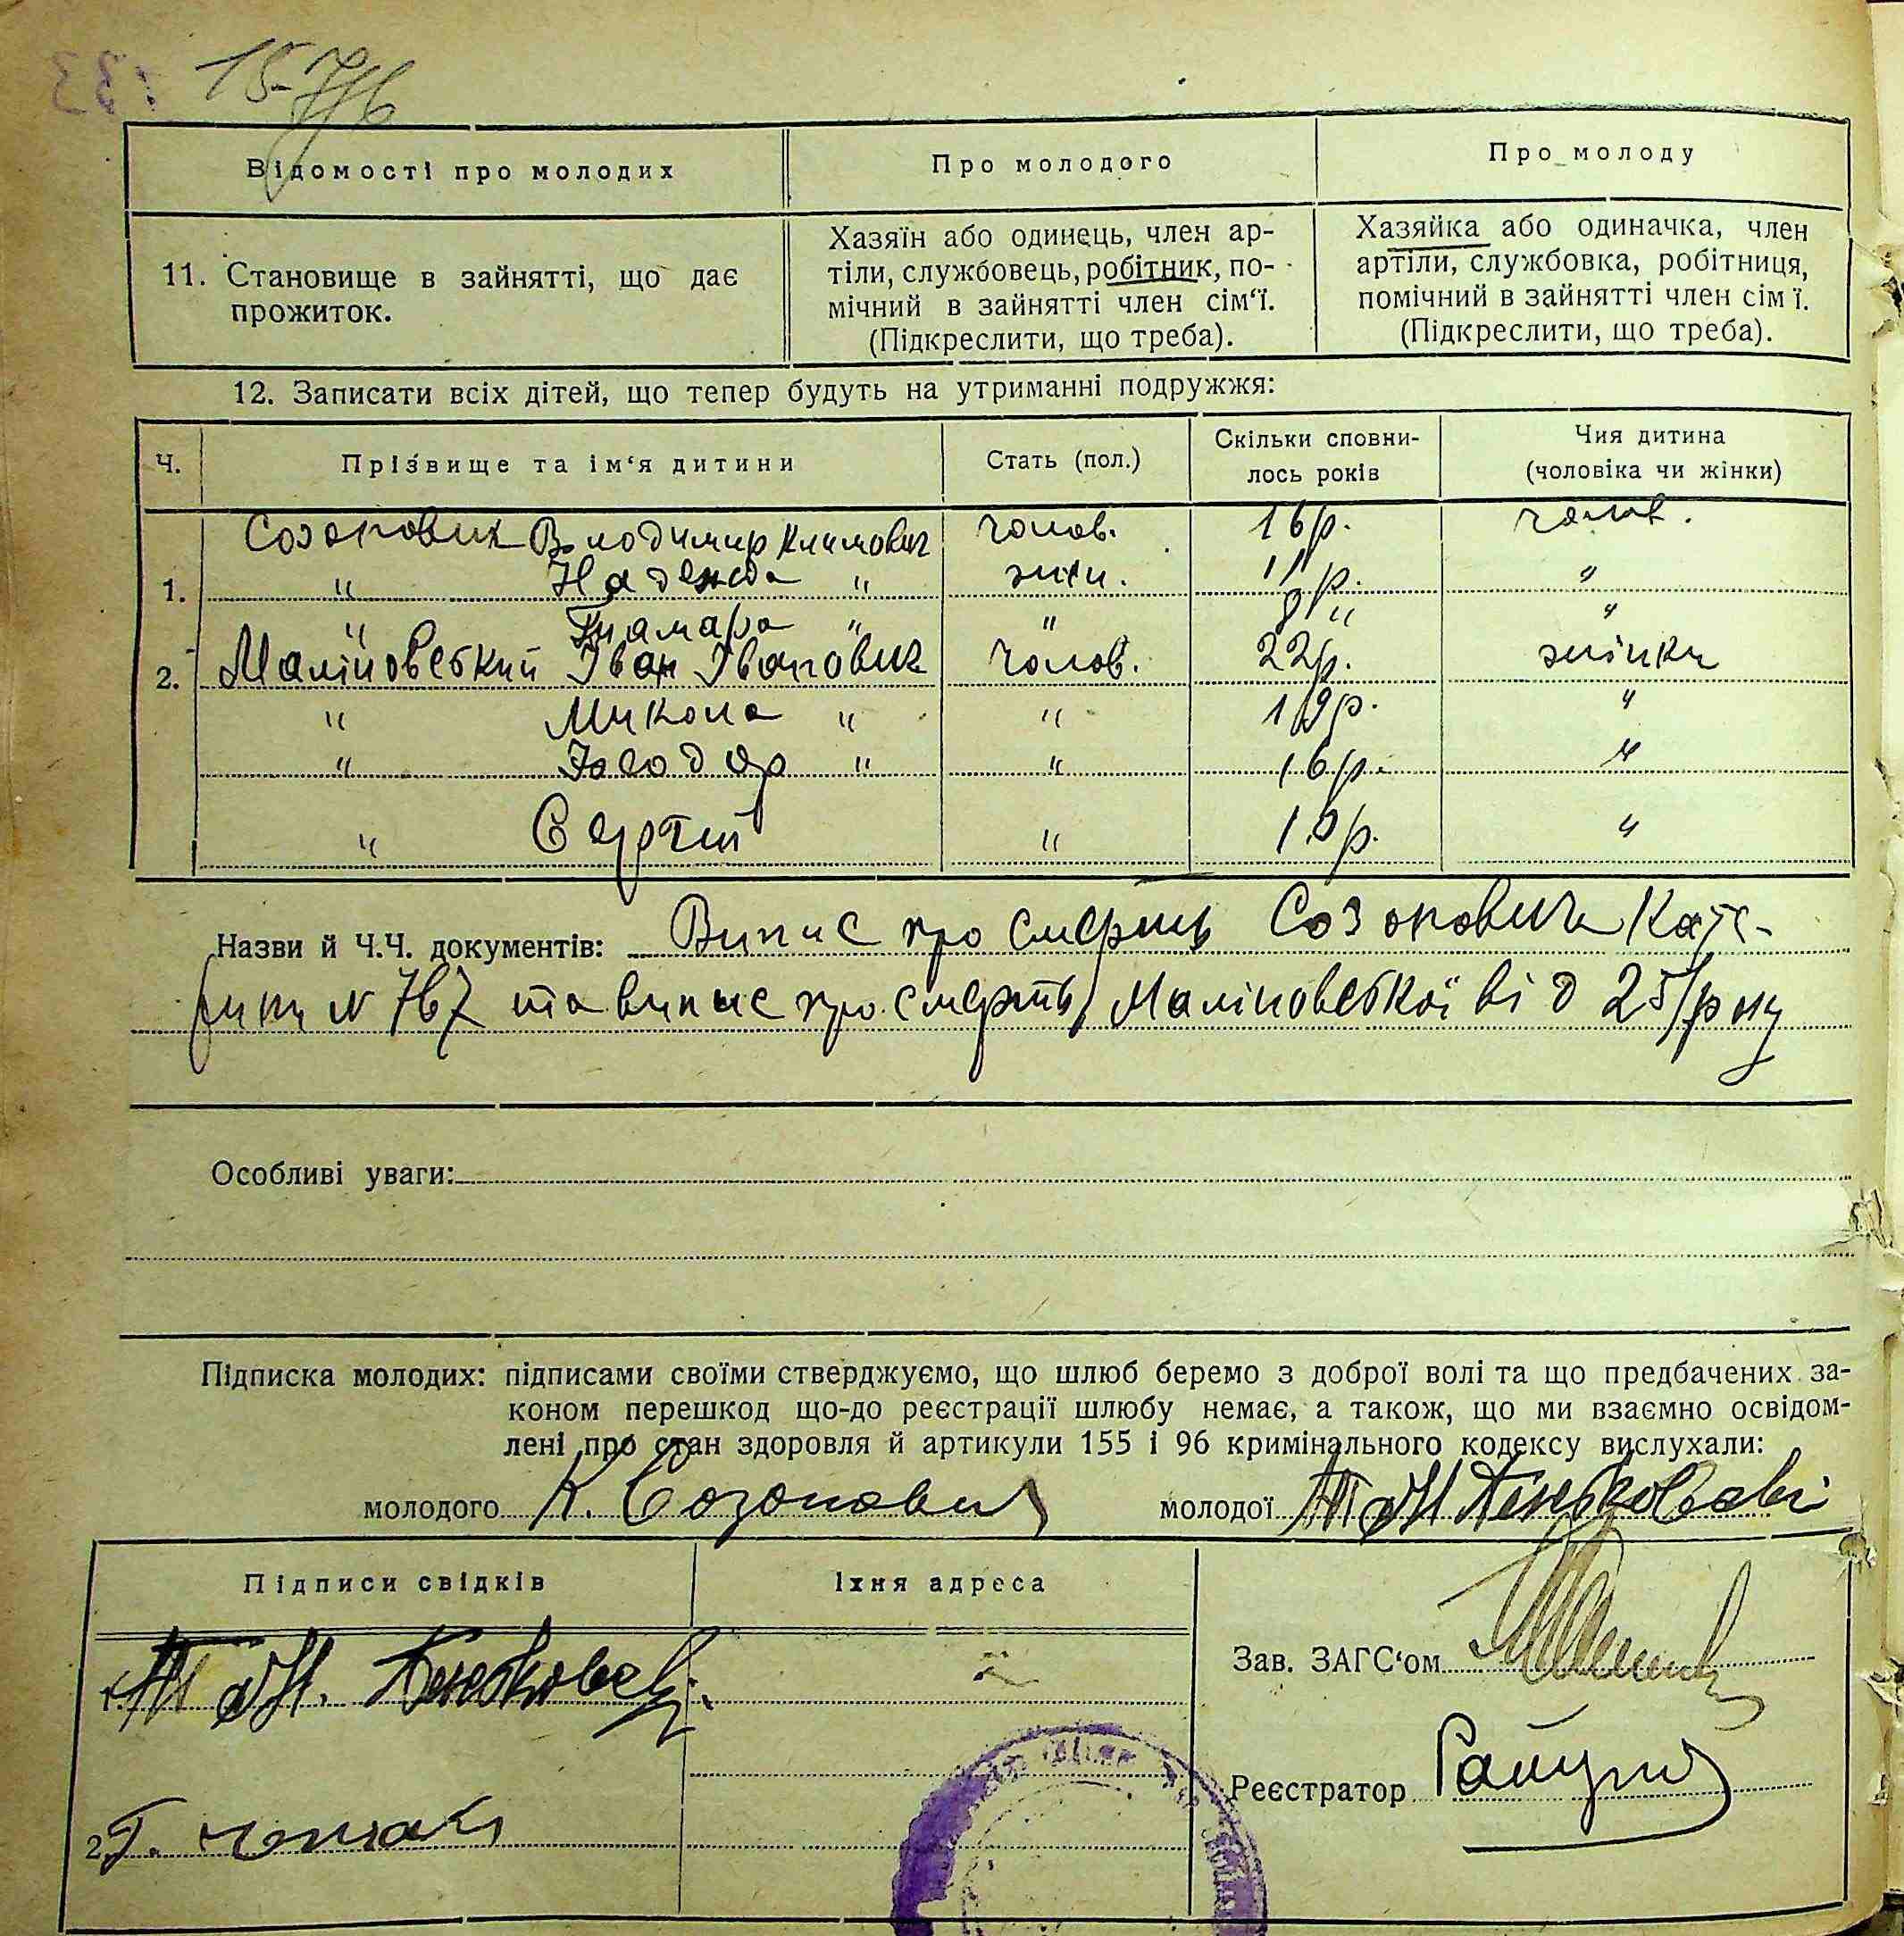 133 15-7/VI
Відомості про молодих
Про молодого
Про молоду
11. Становище в зайнятті, що дає
прожиток.
Хазяїн або одинець, член ар-
тіли, службовець, робітник, по-
мічний в зайнятті член сім'ї.
(Підкреслити, що треба).
Хазяйка або одиначка, член
артіли, службовка, робітниця,
помічний в зайнятті член сім ї.
(Підкреслити, що треба).
12. Записати всіх дітей, що тепер будуть на утриманні подружжя:
Ч.
Прізвище та ім'я дитини
Стать (пол.)
Скільки сповни-
лось років
Чия дитина
(чоловіка чи жінки)
Созонович Володимир Климович чолов. 16 р. чолов.
1. " Надежда " жін. 11 р. "
" Тамара " " 8 " "
2. Маліновський Іван Іванович чолов. 22р. жінки
" Микола " " 19р. "
" Теодор " " 16р. "
" Сергій " 10р. "
Назви й Ч.Ч. документів: Випис про смерть Созонович Кате-
рини № 767 та випис про смерть Маліновської від 25/р ну
Особливі уваги:
Підписка молодих: підписами своїми стверджуємо, що шлюб беремо з доброї волі та що предбачених за-
коном перешкод що-до реєстрації шлюбу немає, а також, що ми взаємно освідом-
лені про стан здоровля й артикули 155 і 96 кримінального кодексу вислухали:
молодого К. Созонович молодої
Підписи свідків
Їхня адреса
Зав. ЗАГС'ом
1.
Реєстратор
2.